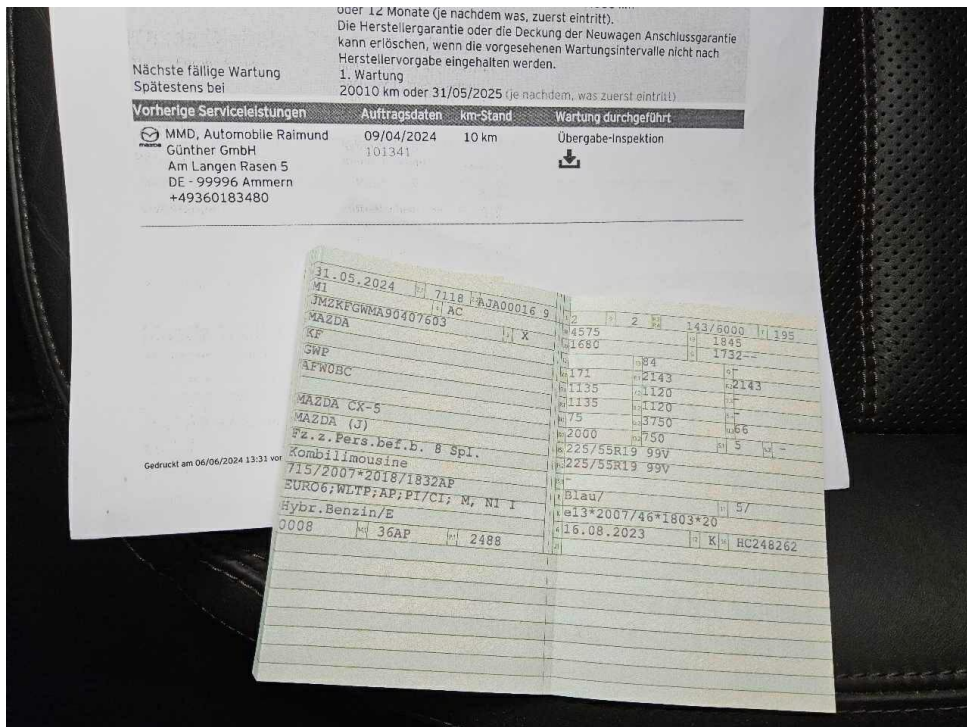 oder 12 Monate (je nachdem was, zuerst eintritt).
Die Herstellergarantie oder die Deckung der Neuwagen Anschlussgarantie
kann erlöschen, wenn die vorgesehenen Wartungsintervalle nicht nach
Herstellervorgabe eingehalten werden.
Nächste fällige Wartung 1. Wartung
Spätestens bei 20010 km oder 31/05/2025 (je nachdem, was zuerst eintritt)
Vorherige Serviceleistungen Auftragsdaten km-Stand Wartung durchgeführt
MMD, Automobile Raimund 09/04/2024 10 km Übergabe-Inspektion
Günther GmbH 101341
Am Langen Rasen 5
DE - 99996 Ammern
+49360183480
Gedruckt am 06/06/2024 13:31 vor
31.05.2024 7118 AJA00016 9
M1 AC
JMZKFGWMA90407603 X
MAZDA
KF
GWP
AFW0BC
MAZDA CX-5
MAZDA (J)
Fz.z.Pers.bef.b. 8 Spl.
Kombilimousine
715/2007*2018/1832AP
EURO6;WLTP;AP;PI/CI; M, N1 I
Hybr.Benzin/E
0008 36AP 2488
2 2 143/6000 195
4575 1845
1680 1732--
84 -
171 2143 2143
1135 1120 -
1135 1120 -
75 3750 66
2000 750 5 -
225/55R19 99V
225/55R19 99V
-
Blau/ 5/
e13*2007/46*1803*20
16.08.2023 K HC248262